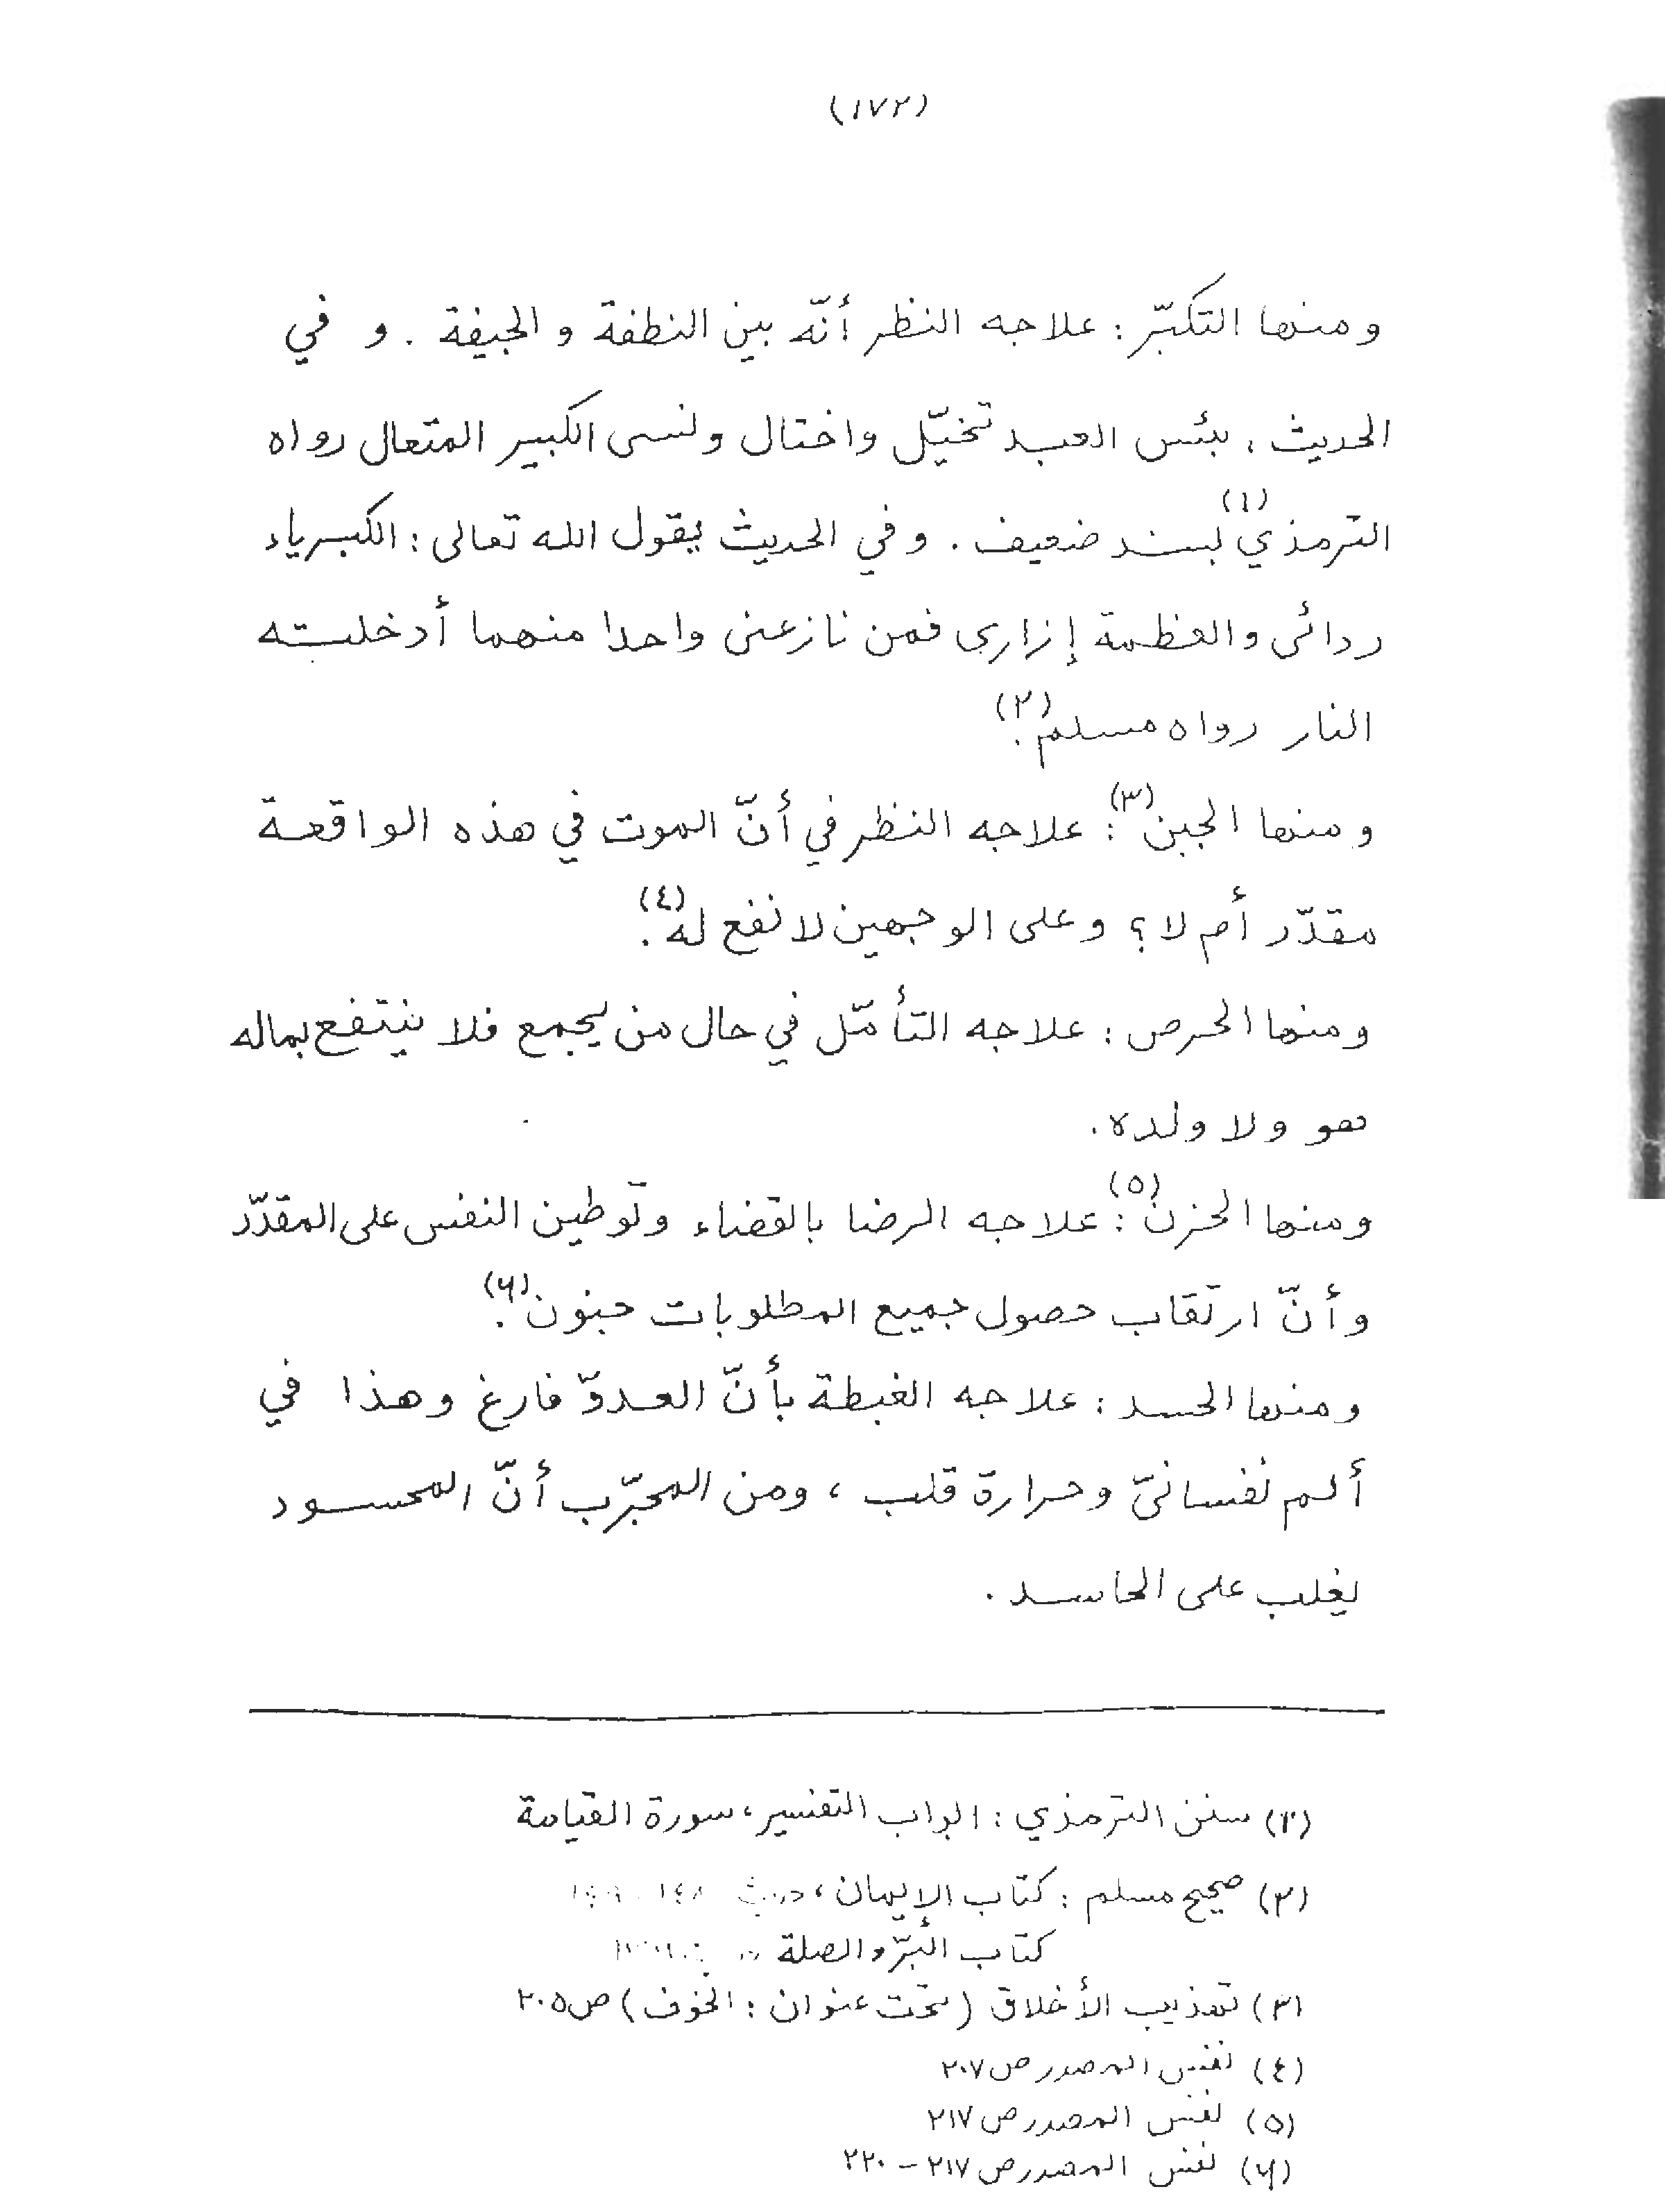 (١٧٢)
ومنها التكبّر : علاجه النظر أنّه بين النطفة و الجيفة . و في
الحديث ، بئس العبد تخيّل واختال ونسى الكبير المتعال رواه
الترمذي(١) بسند ضعيف . وفي الحديث يقول الله تعالى : الكبرياء
ردائى والعظمة إزارى فمن نازعنى واحدا منهما أدخلته
النار رواه مسلم(٢).
ومنها الجبن(٣) : علاجه النظر في أنّ الموت في هذه الواقعة
مقدّر أم لا ؟ وعلى الوجهين لا نفع له(٤).
ومنها الحرص : علاجه التأمّل في حال من يجمع فلا ينتفع بماله
هو ولا ولده.
ومنها الحزن(٥) : علاجه الرضا بالقضاء وتوطين النفس على المقدّر
وأنّ ارتقاب حصول جميع المطلوبات جنون(٦).
ومنها الحسد : علاجه الغبطة بأنّ العدوّ فارغ وهذا في
ألم نفسانىّ وحرارة قلب ، ومن المجرّب أنّ المحسود
يغلب على الحاسد .
(١) سنن الترمذي : ابواب التفسير ، سورة القيامة
(٢) صحيح مسلم : كتاب الإيمان ، حديث ١٤٨
كتاب البرّ والصلة
(٣) تهذيب الأخلاق (تحت عنوان : الخوف) ص٢٠٥
(٤) نفس المصدر ص٢٠٧
(٥) نفس المصدر ص٢١٧
(٦) نفس المصدر ص٢١٧ – ٢٢٠